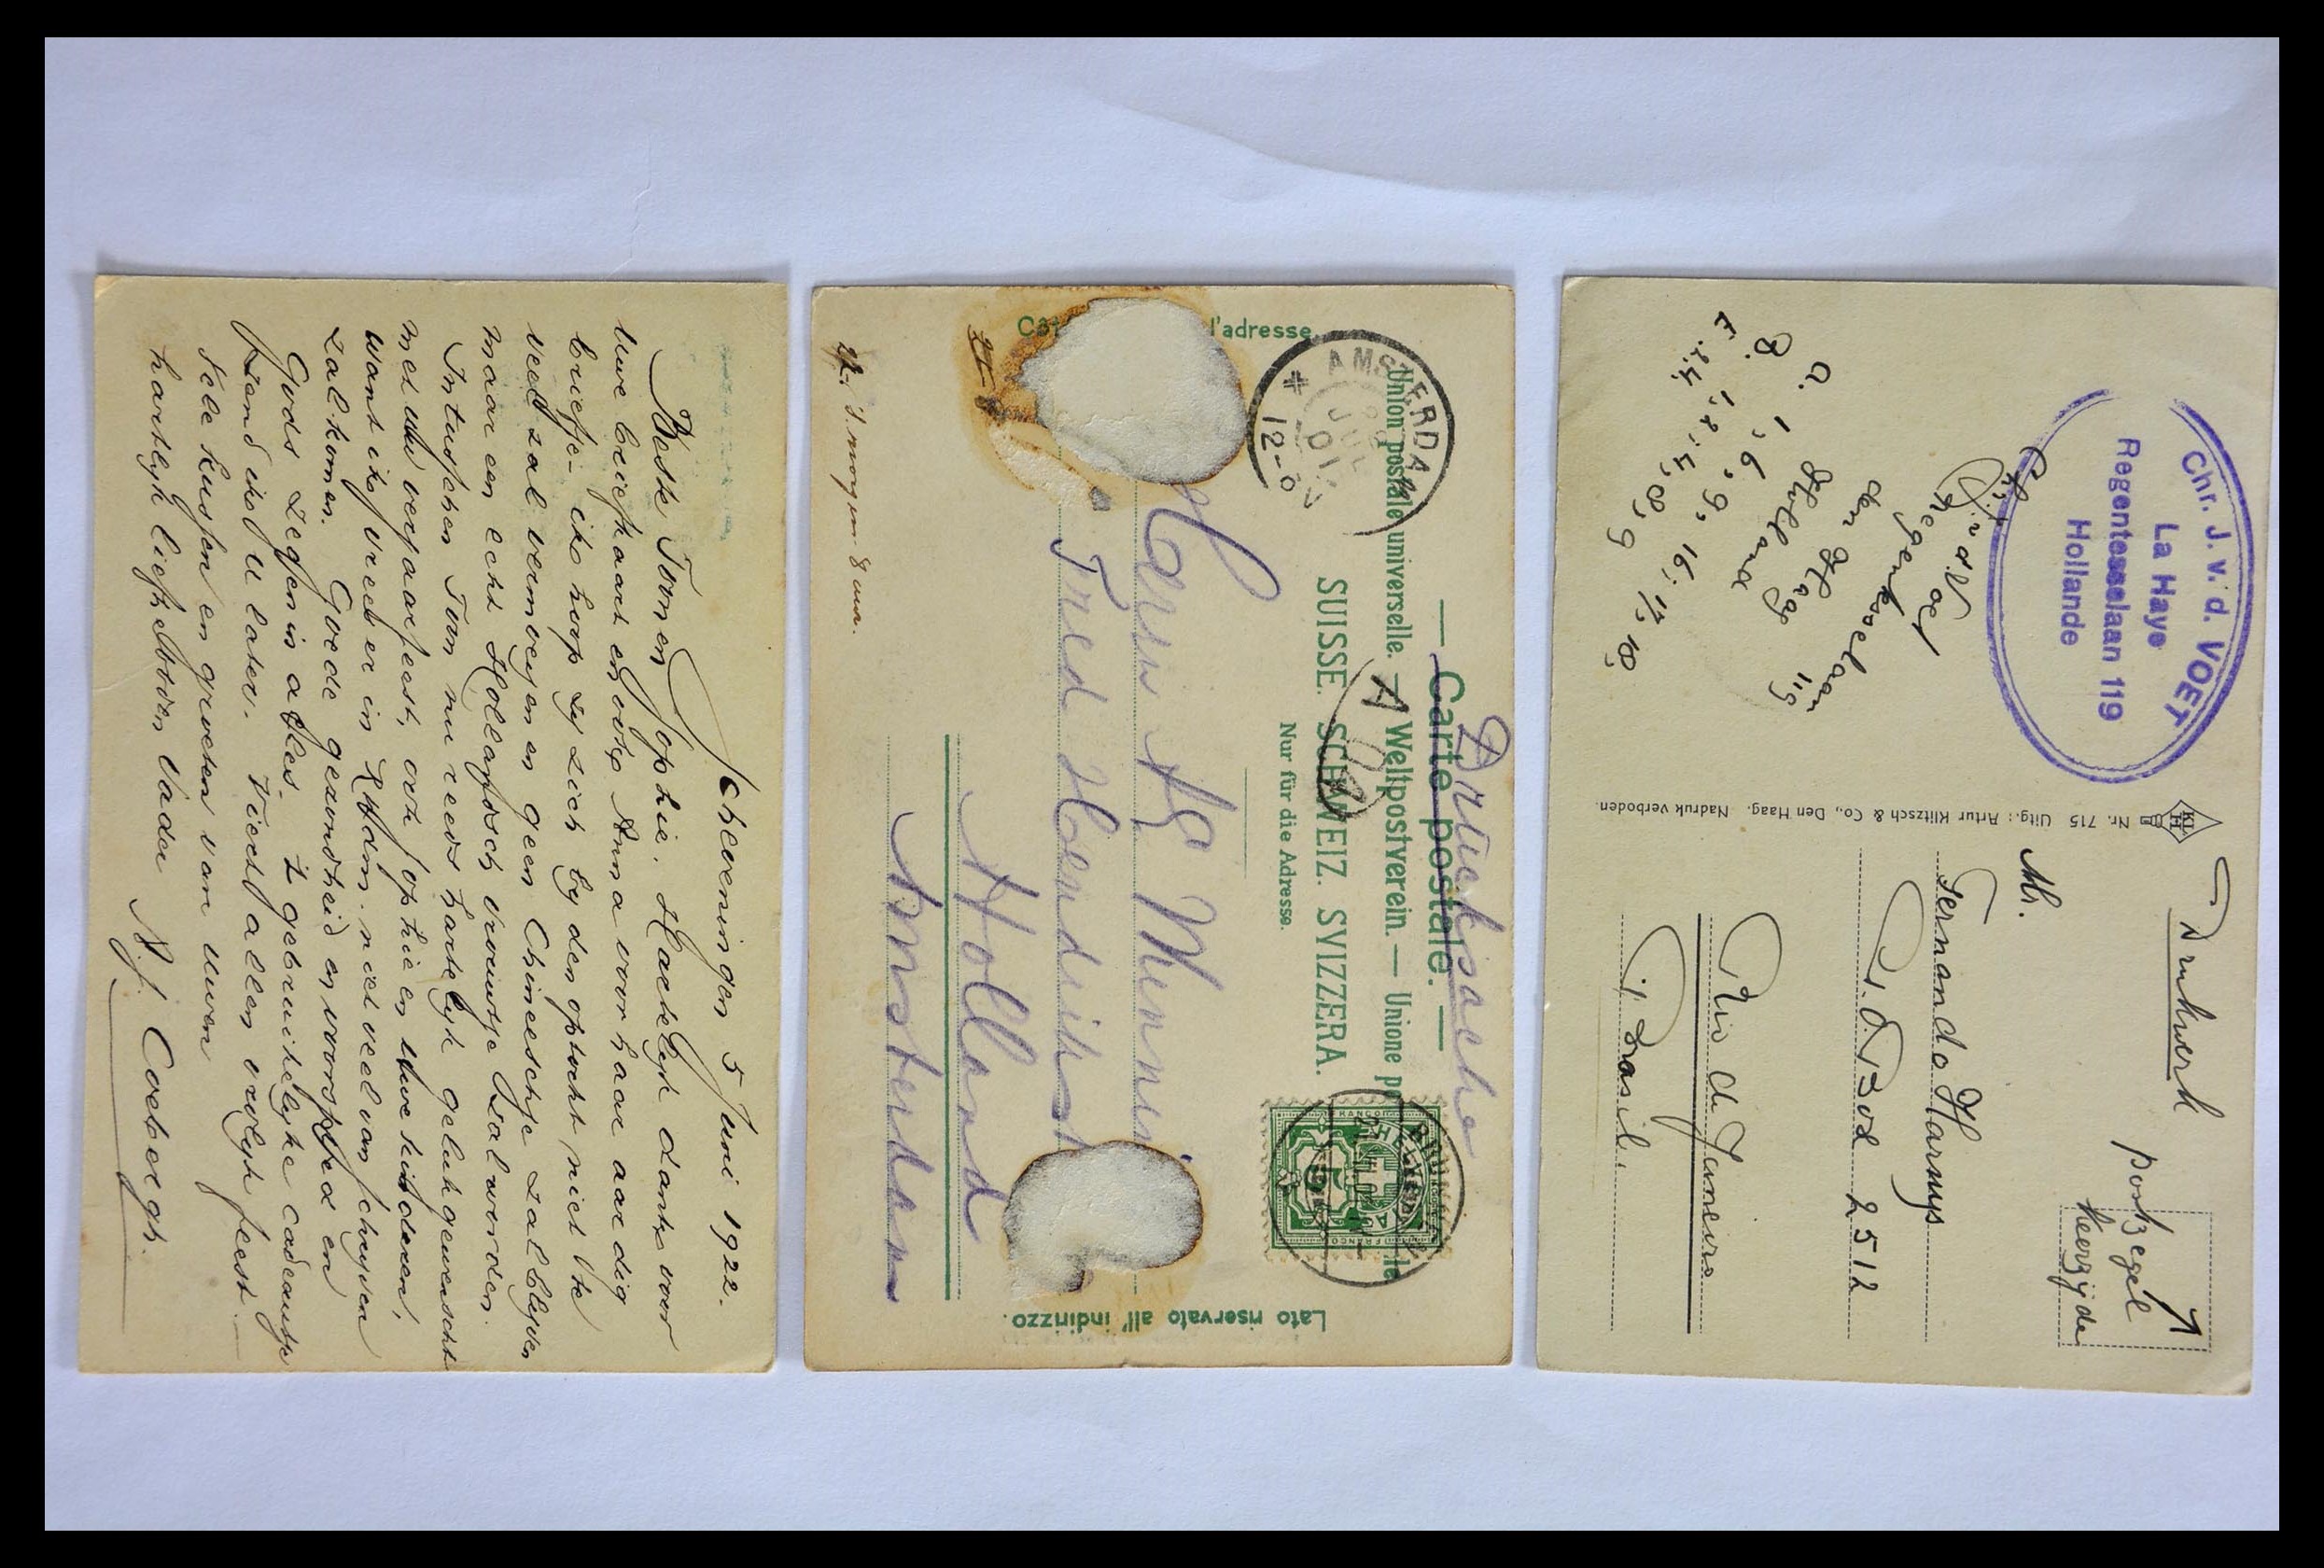 Scheveningen 5 Juni 1922.
Beste Toon en Sophie. Hartelyk dank voor
Uwe briefkaart en ook Anna voor haar aardig
briefje - ik hoop zy zich by den optocht niet te
veel zal vermoeyen en geen Chineeschje zal blyven
maar een echt Hollandsch vrouwtje zal worden.
Intusschen Toon nu reeds hartelyk gelukgewenscht
met uw verjaarfeest, ook Sophie en Uwe kinderen,
want ik vrees er in R'dam niet veel van schryven
zal komen. Goede gezondheid en voorspoed en
Gods zegen in alles. 't gebruikelyke cadeautje
zend ik U later. Viert allen vrolyk feest. —
Vele kussen en groeten van uwen
hartelyk liefhebbenden Vader
N.J. Coebergh.
Drucksache
— Carte postale. —
Union postale universelle. — Weltpostverein. — Unione postale
SUISSE. SCHWEIZ. SVIZZERA.
Nur für die Adresse.
Côté l'adresse.
Lato riservato all' indirizzo.
AMSTERDAM
JUL
01
12-
FRANCO
5
Herrn
Fred Hendrik
Holland
Amsterdam
's morgen 8 uur.
Chr. J. v. d. VOET
La Haye
Regentesselaan 119
Hollande
Chr. J. v. d. Voet
Regentesselaan 119
den Haag
Holland
Nr. 715 Uitg.: Artur Klitzsch & Co., Den Haag. Nadruk verboden.
Drukwerk
postzegel
keerzijde
Mr.
Fernando Harmys
P.O. Box 2512
Rio de Janeiro
Brasil.